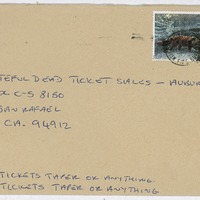 TEFUL DEAD TICKET SALES - AUGUR
X C-S 8150
SAN RAFAEL
CA. 94912
TICKETS TAPER OR ANYTHING
TICKETS TAPER OR ANYTHING